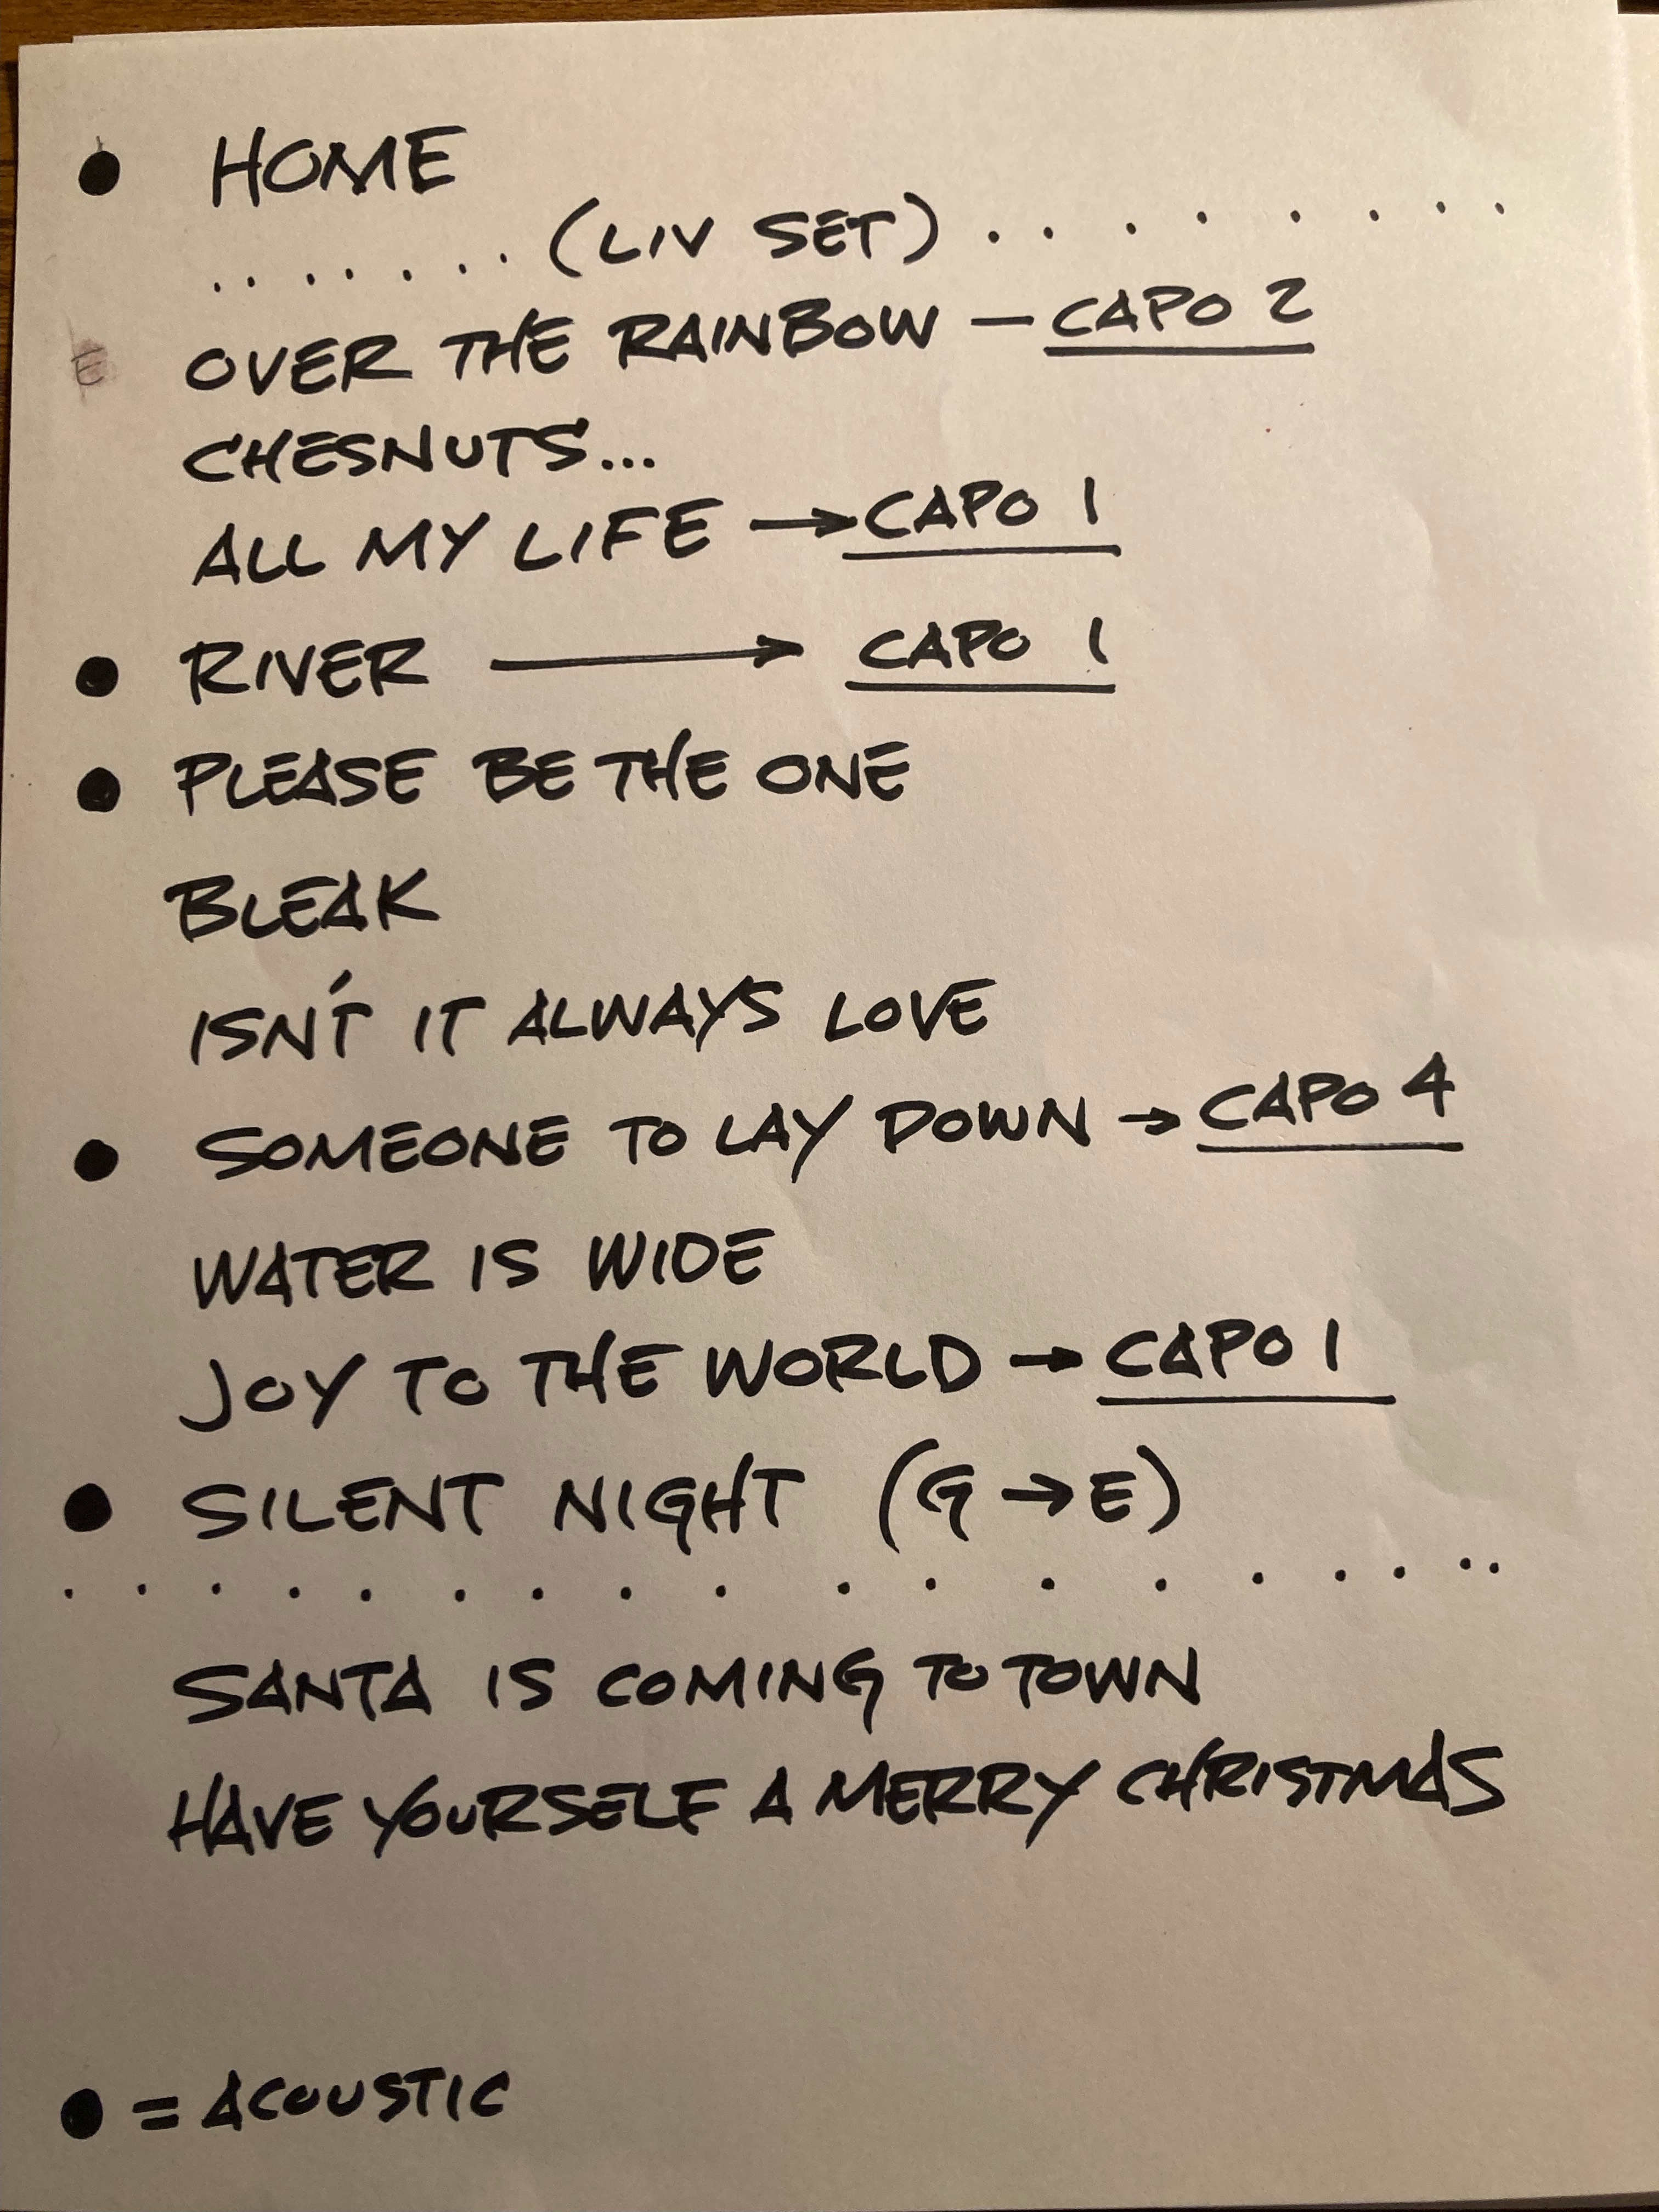 ● HOME
....... (LIV SET) ........
E OVER THE RAINBOW — CAPO 2
CHESNUTS...
ALL MY LIFE → CAPO 1
● RIVER → CAPO 1
● PLEASE BE THE ONE
BLEAK
ISN'T IT ALWAYS LOVE
● SOMEONE TO LAY DOWN → CAPO 4
WATER IS WIDE
JOY TO THE WORLD → CAPO 1
● SILENT NIGHT (G → E)
...................
SANTA IS COMING TO TOWN
HAVE YOURSELF A MERRY CHRISTMAS
● = ACOUSTIC